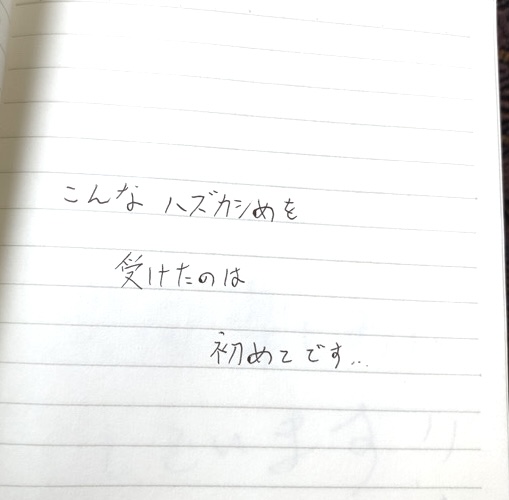 こんな ハズカシめを
受けたのは
初めてです…